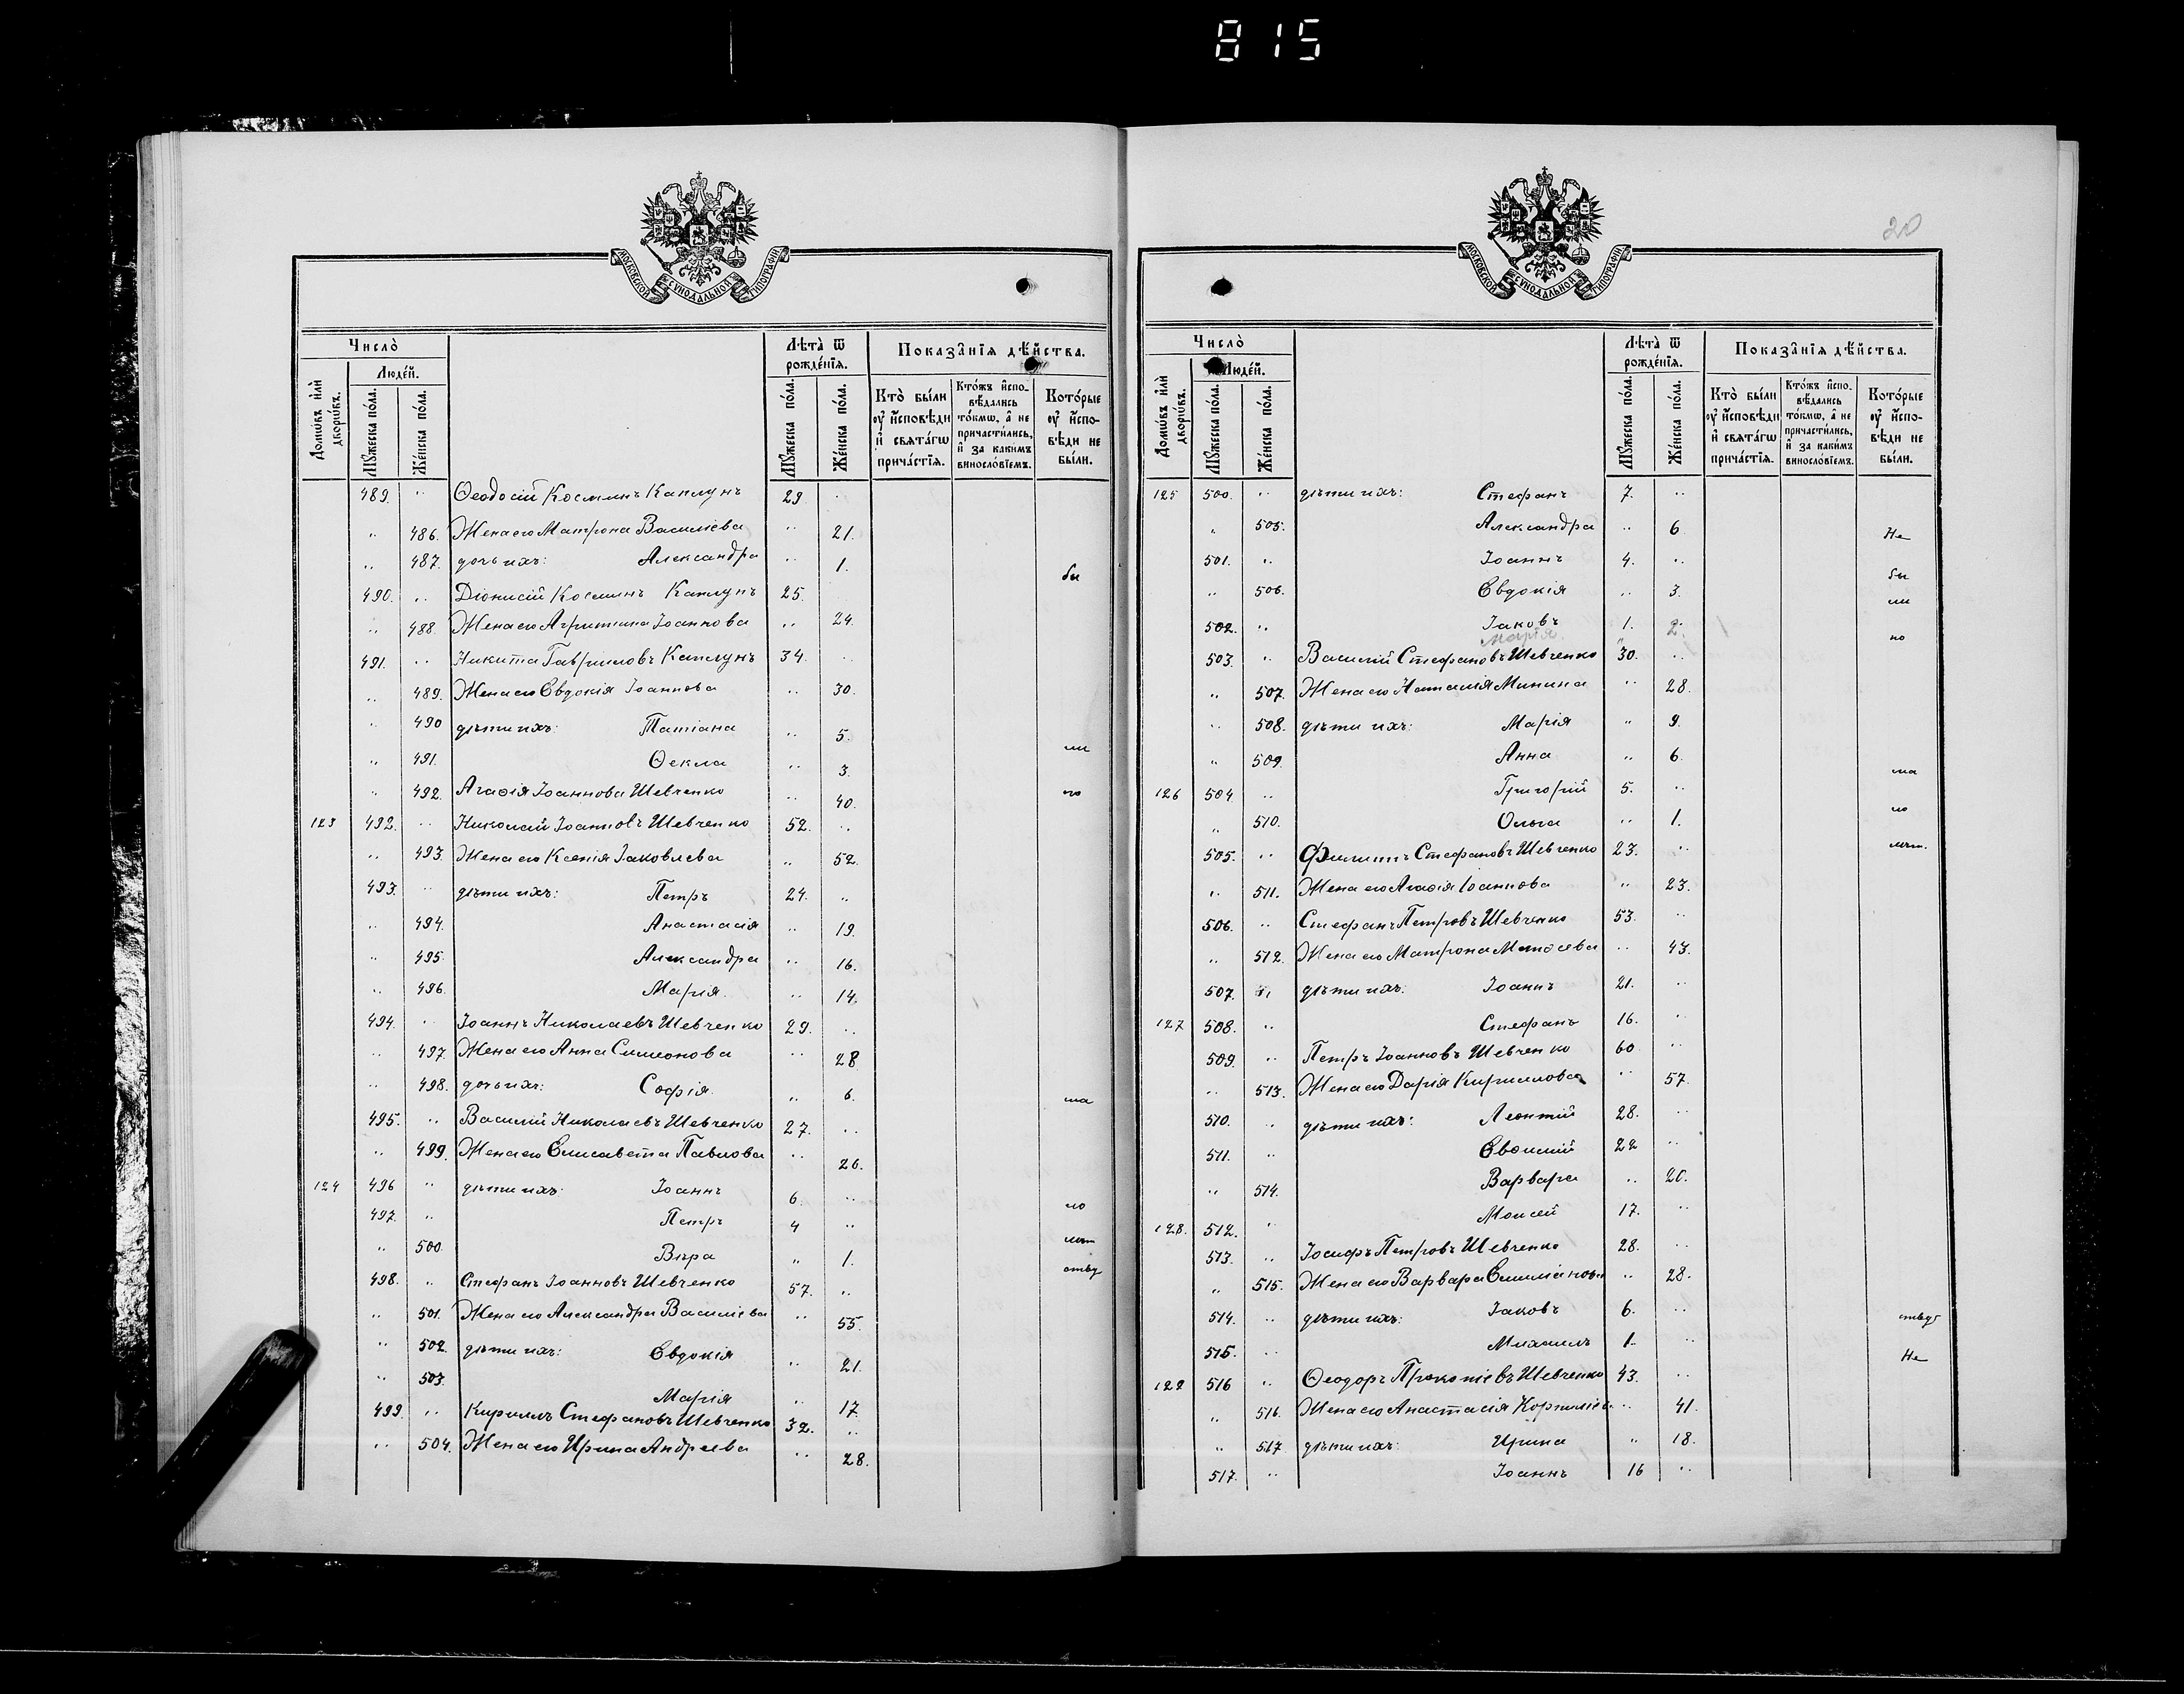 815
20
МОСКОВСКОЙ СѴНОДАЛЬНОЙ ТИПОГРАФІИ
Число̀
Людей.
Домѡвъ и҆лѝ дворѡвъ.
Мꙋжеска по́ла.
Же́нска по́ла.
Лѣта̀ ѿ рожде́нїѧ.
Мꙋжеска по́ла.
Же́нска по́ла.
Показа̑нїѧ дѣ́йства.
Кто̀ бы́ли ᲂу҆ и҆́сповѣди и҆ свѧта́гѡ прича́стїѧ.
Кто́жъ и҆спо-вѣ́дались то́кмѡ, а҆ не причасти́лись, и҆ за каки́мъ винослові́емъ.
Кото́рые ᲂу҆ и҆́спо-вѣди не бы́ли.
489. „ Ѳеодосій Косминъ Каплунъ 29 „
„ 486. Жена его Матрона Василіева „ 21.
„ 487. дочь ихъ: Александра „ 1. бы
490. „ Діонисій Косминъ Каплунъ 25. „
„ 488. Жена его Агрипина Іоаннова „ 24.
491. „ Никита Гавриловъ Каплунъ 34. „
„ 489. Жена его Евдокія Іоаннова „ 30.
„ 490 дѣти их: Татіана „ 5. ли
„ 491. Ѳекла „ 3.
„ 492. Агаѳія Іоаннова Шевченко „ 40. по
123 492. „ Николай Іоанновъ Шевченко 52. „
„ 493. Жена его Ксенія Іаковлева „ 52.
493. „ дѣти ихъ: Петръ 24. „
„ 494. Анастасія „ 19.
„ 495. Александра „ 16.
„ 496. Марія. „ 14.
494. „ Іоаннъ Николаевъ Шевченко 29. „
„ 497. Жена его Анна Симеонова „ 28
„ 498. дочь их: Софія. „ 6. ма
495. „ Василий Николаевъ Шевченко 27. „
„ 499. Жена его Елисавета Павлова „ 26.
124 496 „ дѣти ихъ: Іоаннъ 6. „ ло
497. „ Петръ 4 „ лѣт
„ 500. Вѣра „ 1. ству
498. „ Стефанъ Іоанновъ Шевченко 57. „
„ 501. Жена его Александра Василіева „ 55.
„ 502. дѣти ихъ: Евдокія „ 21.
„ 503. Марія „ 17.
499. „ Кириллъ Стефановъ Шевченко 32. „
„ 504. Жена его Ирина Андреева „ 28.
МОСКОВСКОЙ СѴНОДАЛЬНОЙ ТИПОГРАФІИ
Число̀
Людей.
Домѡвъ и҆лѝ дворѡвъ.
Мꙋжеска по́ла.
Же́нска по́ла.
Лѣта̀ ѿ рожде́нїѧ.
Мꙋжеска по́ла.
Же́нска по́ла.
Показа̑нїѧ дѣ́йства.
Кто̀ бы́ли ᲂу҆ и҆́сповѣди и҆ свѧта́гѡ прича́стїѧ.
Кто́жъ и҆спо-вѣ́дались то́кмѡ, а҆ не причасти́лись, и҆ за каки́мъ винослові́емъ.
Кото́рые ᲂу҆ и҆́спо-вѣди не бы́ли.
125 500. „ дѣти ихъ: Стефанъ 7. „
„ 505. Александра „ 6 Не
501. „ Іоаннъ 4. „ бы
„ 506. Евдокія „ 3. ли
502. „ Іаковъ 1. „ по
Марія „ 2.
503. „ Василий Стефановъ Шевченко 30. „
„ 507. Жена его Наталія Минина „ 28.
„ 508. дѣти ихъ: Марія „ 9.
„ 509. Анна „ 6. ма
126 504 „ Григорій 5. „ ло
„ 510. Ольга „ 1.
505. „ Филиппъ Стефановъ Шевченко 23. „ лѣт.
„ 511. Жена его Агаѳія Іоаннова „ 23.
506. „ Стефанъ Петровъ Шевченко 53. „
„ 512. Жена его Матрона „ 43.
507. „ дѣти ихъ: Іоаннъ 21. „
127 508. „ Стефанъ 16. „
509. „ Петръ Іоанновъ Шевченко 60 „
„ 513. Жена его Дарія Кириллова „ 57.
510. „ дѣти ихъ: Леонтій 28. „
511. „ Евѳимій 22 „
„ 514. Варвара „ 20.
128. 512. „ Моисей 17. „
513. „ Іосифъ Петровъ Шевченко 28. „
„ 515. Жена его Варвара Емиліанова „ 28.
514. „ дѣти ихъ: Іаковъ 6. „ ству
515. „ Михаилъ 1. „ Не
129 516 „ Ѳеодоръ Прокопіевъ Шевченко 43. „
„ 516. Жена его Анастасія Корниліева „ 41.
„ 517 дѣти ихъ: Ирина „ 18.
517. „ Іоаннъ 16 „